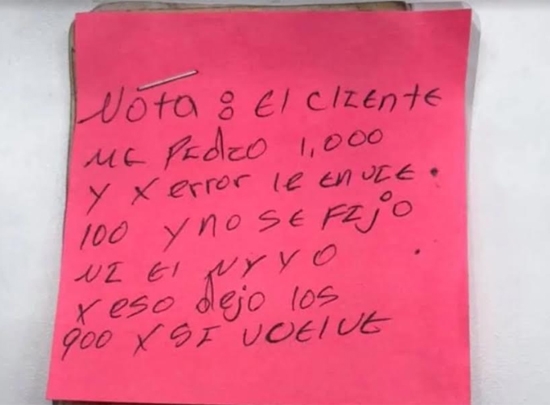 Nota: El cliente
me Pidio 1,000
y x error le envie.
100 y no se fijo
ni el ny yo
x eso dejo los
900 x si vuelve